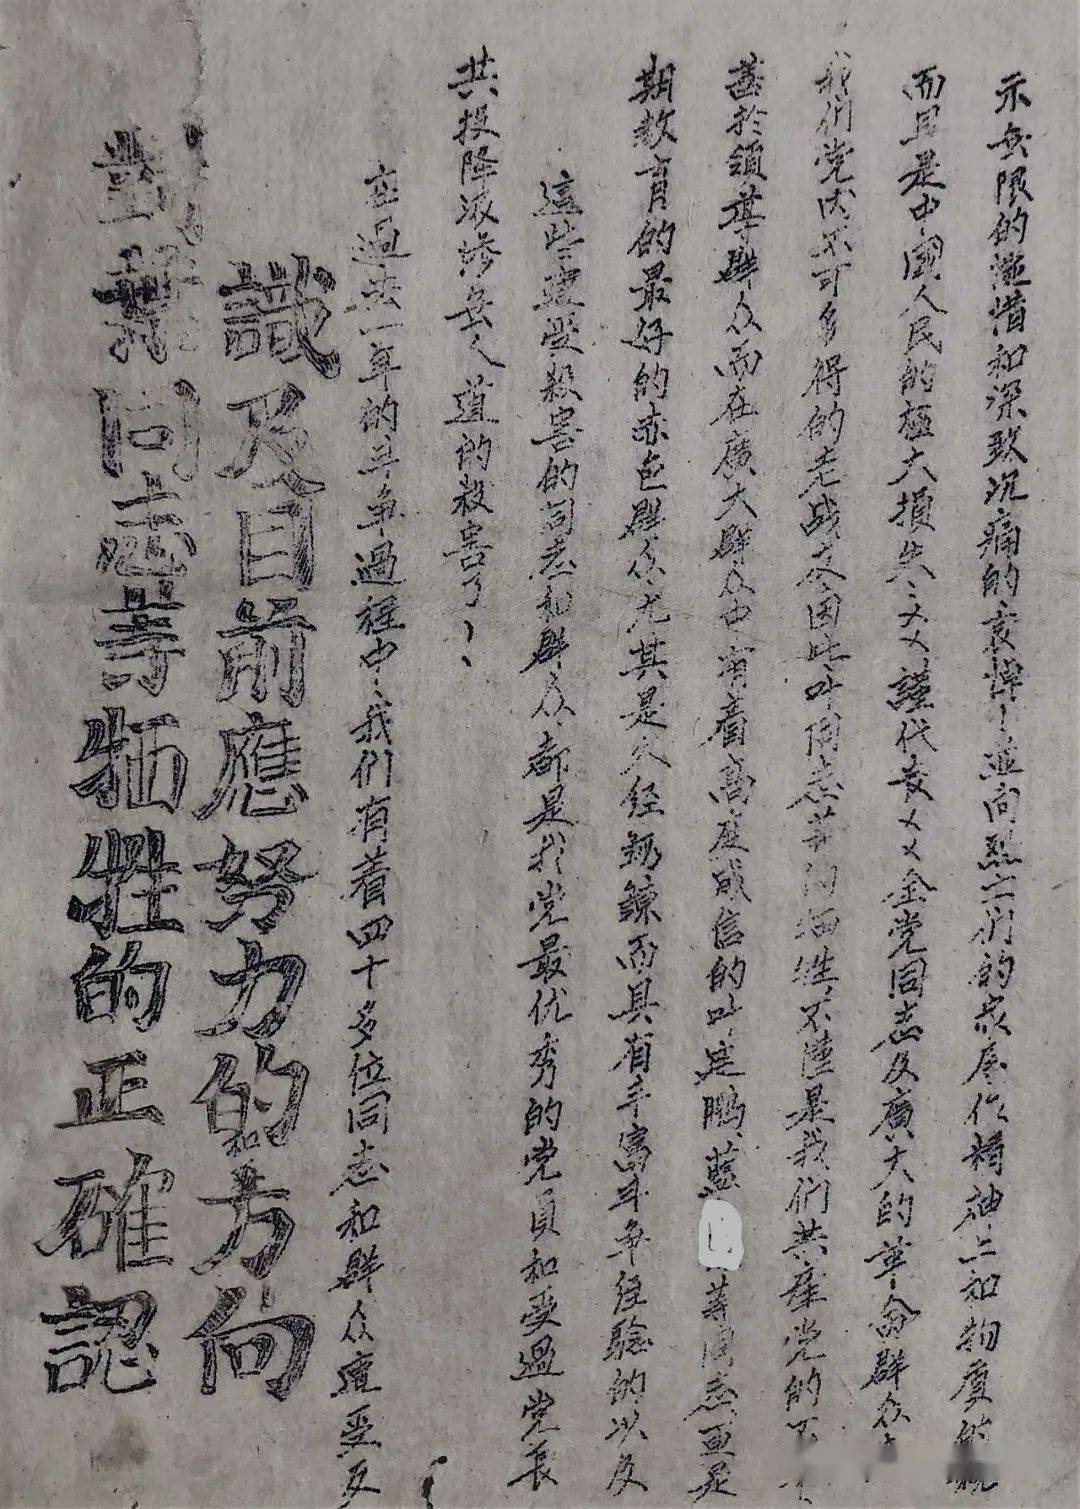 對葉同志等牺牲的正確認
識及目前應努力的和方向
在過去一年的斗争過程中、我们有着四十多位同志和群众遭受反
共投降派惨無人道的殺害了！
這些遭受殺害的同志和群众、都是我党最优秀的党員和受過党長
期教育的最好的赤色群众尤其是久经鍛鍊而具有丰富斗争经驗的以及
善於領導群众而在廣大群众中有着高度威信的叶廷鵬、蓝 等同志更是
我们党内不可多得的老战友因此叶同志等的牺牲、不僅是我们共産党的不
而且是中國人民的極大損失、ㄨㄨ謹代表ㄨㄨ全党同志及廣大的革命群众
示無限的惋惜和深致沉痛的哀悼！並向烈士们的家属作精神上和物質的